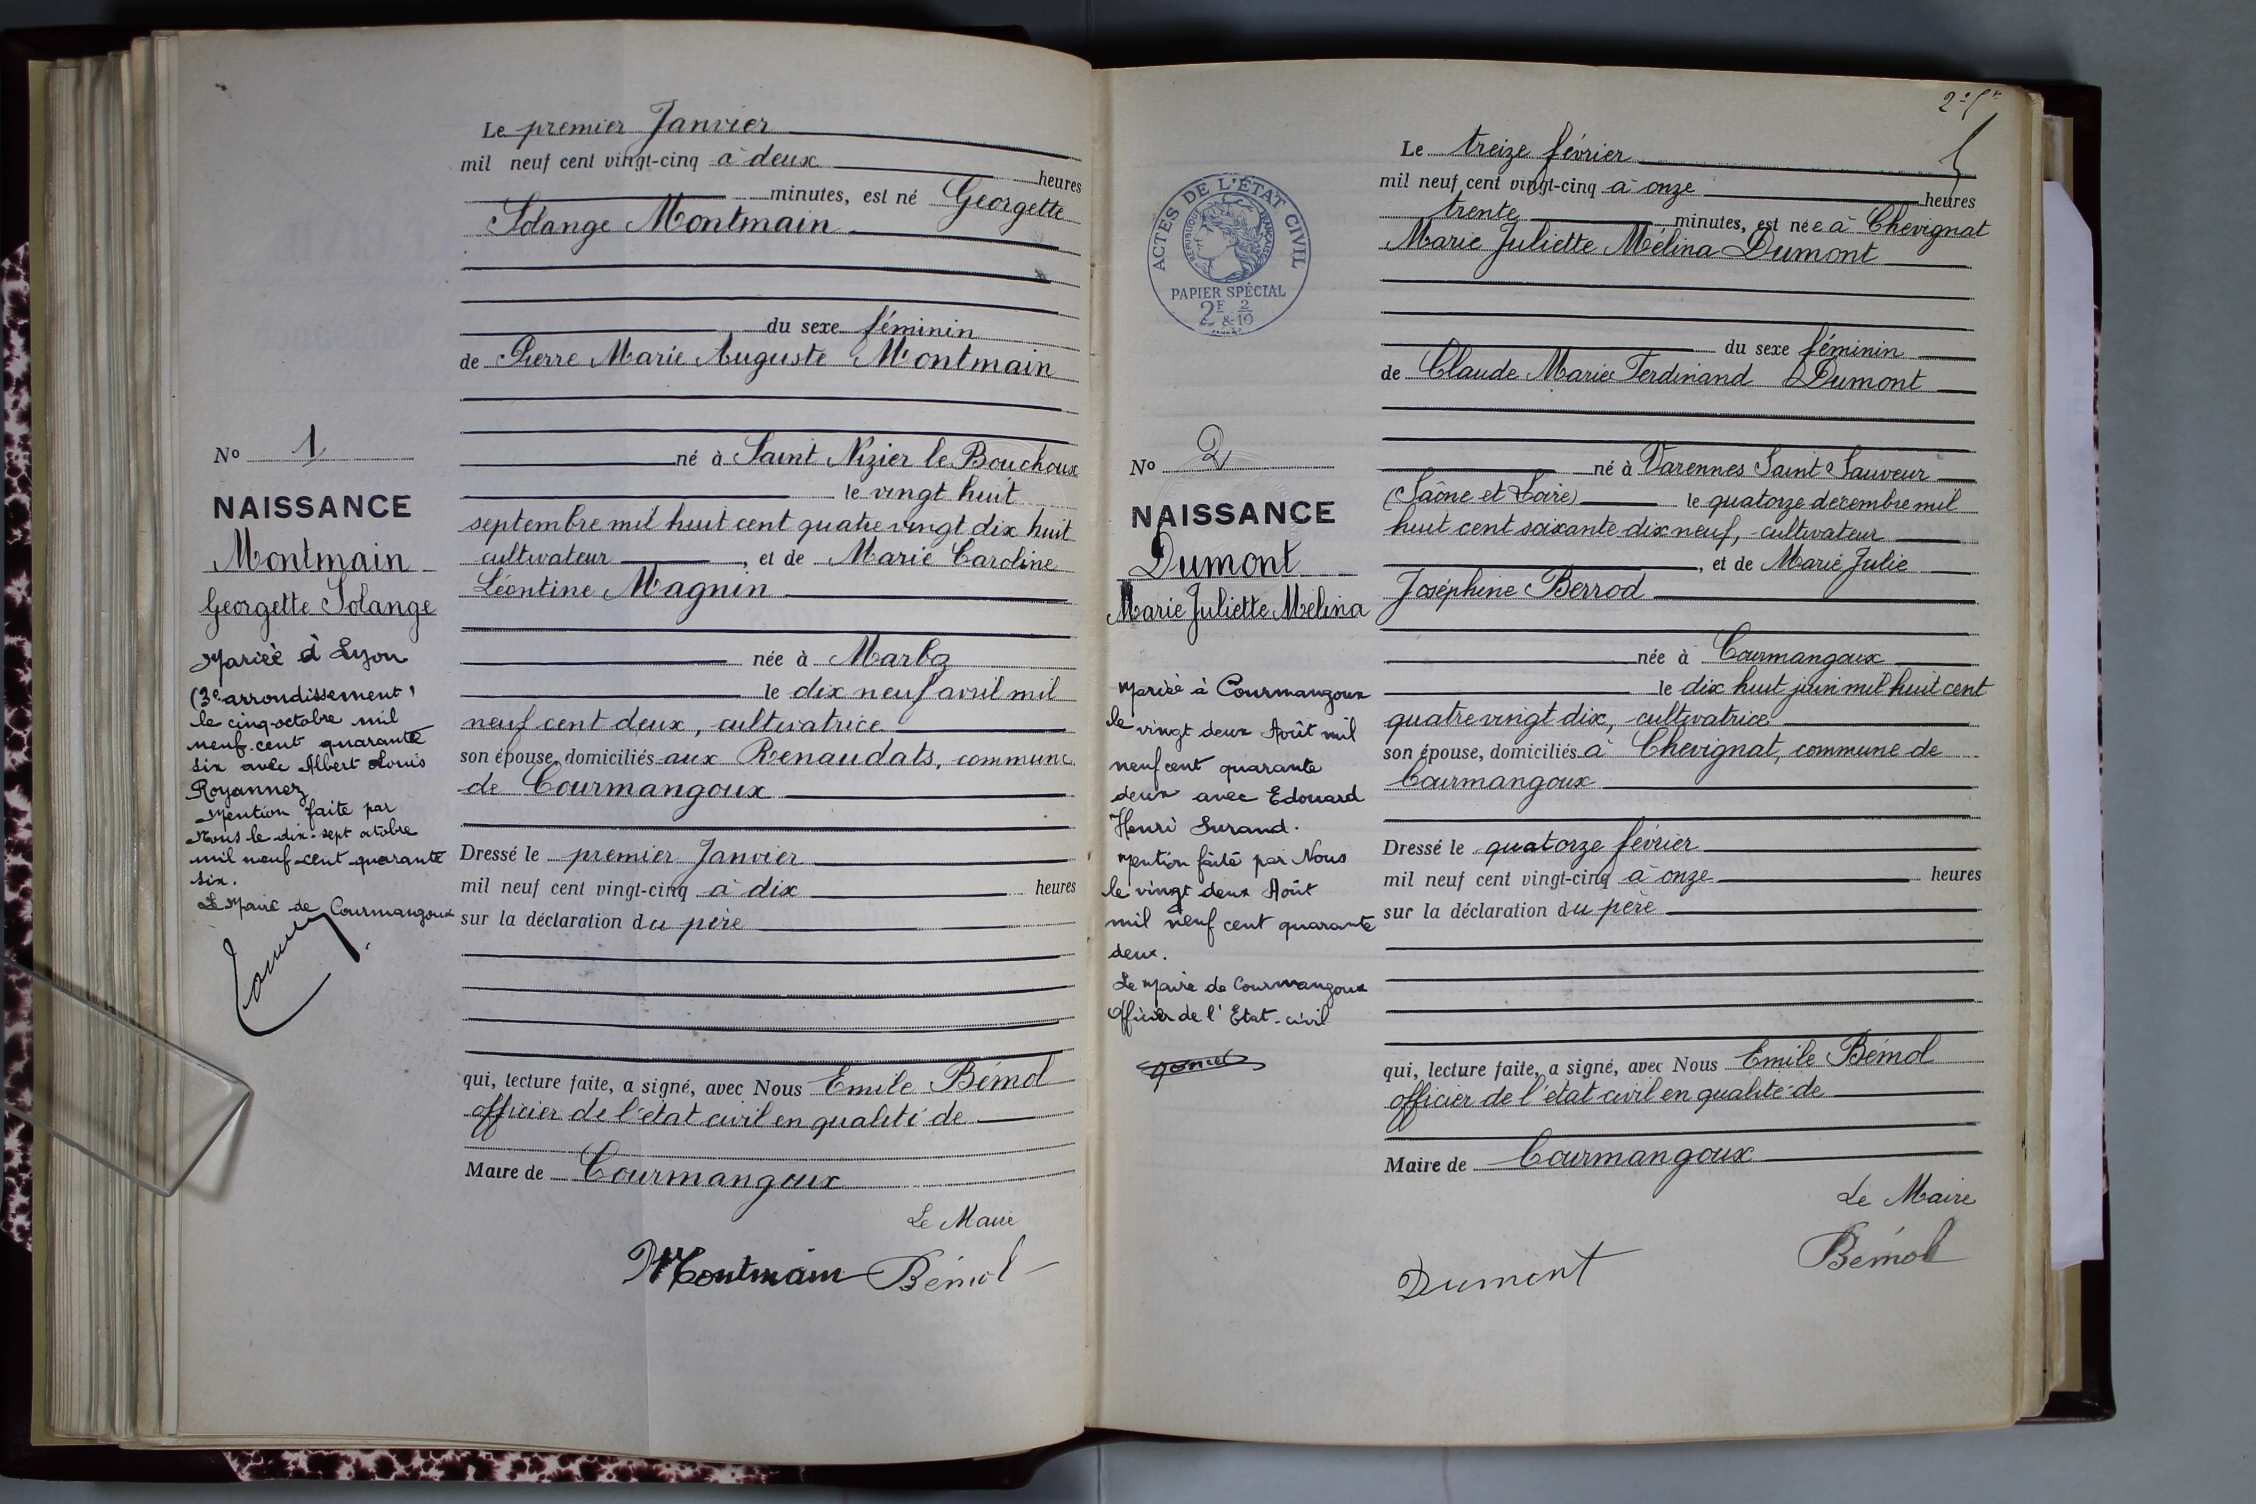 Le premier Janvier
mil neuf cent vingt-cinq à deux heures
minutes, est né Georgette
Solange Montmain
du sexe féminin
de Pierre Marie Auguste Montmain
né à Saint Nizier le Bouchoux
le vingt huit
septembre mil huit cent quatre vingt dix huit
cultivateur, et de Marie Caroline
Léontine Magnin
née à Marboz
le dix neuf avril mil
neuf cent deux, cultivatrice
son épouse, domiciliés aux Renaudats, commune
de Courmangoux
Dressé le premier Janvier
mil neuf cent vingt-cinq à dix heures
sur la déclaration du père
qui, lecture faite, a signé, avec Nous Emile Bémol
officier de l'état civil en qualité de
Maire de Courmangoux
Le Maire
Montmain Bémol
No 1
NAISSANCE
Montmain
Georgette Solange
Mariée à Lyon
(3e arrondissement)
le cinq octobre mil
neuf cent quarante
six avec Albert Louis
Royannez
Mention faite par
Nous le dix-sept octobre
mil neuf cent quarante
six.
Le Maire de Courmangoux
Le treize février
mil neuf cent vingt-cinq à onze heures
trente minutes, est née à Chevignat
Marie Juliette Mélina Dumont
du sexe féminin
de Claude Marie Ferdinand Dumont
né à Varennes Saint Sauveur
(Saône et Loire) le quatorze décembre mil
huit cent soixante dix neuf, cultivateur
, et de Marie Julie
Joséphine Berrod
née à Courmangoux
le dix huit juin mil huit cent
quatre vingt dix, cultivatrice
son épouse, domiciliés à Chevignat, commune de
Courmangoux
Dressé le quatorze février
mil neuf cent vingt-cinq à onze heures
sur la déclaration du père
qui, lecture faite, a signé, avec Nous Emile Bémol
officier de l'état civil en qualité de
Maire de Courmangoux
Le Maire
Dumont Bémol
ACTES DE L'ÉTAT CIVIL
RÉPUBLIQUE FRANÇAISE
PAPIER SPÉCIAL
2F & 2/10
No 2
NAISSANCE
Dumont
Marie Juliette Mélina
Mariée à Courmangoux
le vingt deux Août mil
neuf cent quarante
deux avec Edouard
Henri Surand.
Mention faite par Nous
le vingt deux Août
mil neuf cent quarante
deux.
Le Maire de Courmangoux
Officier de l'Etat-civil